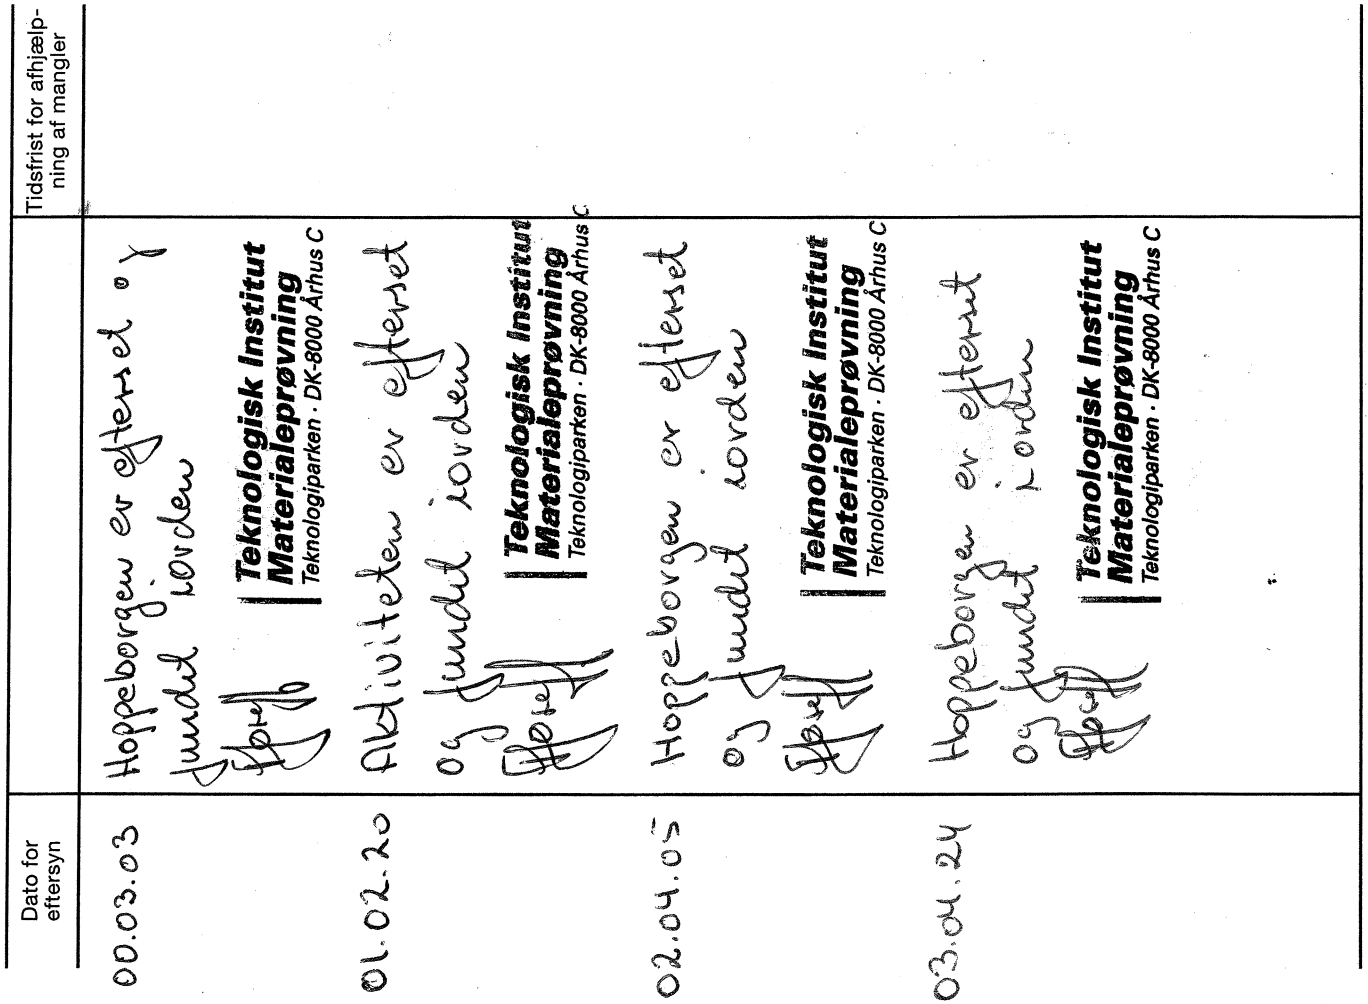 Dato for
eftersyn
Tidsfrist for afhjælp-
ning af mangler
00.03.03
Hoppeborgen er efterset og
fundet iorden
Teknologisk Institut
Materialeprøvning
Teknologiparken · DK-8000 Århus C
01.02.20
Aktiviteten er efterset
og fundet iorden
Teknologisk Institut
Materialeprøvning
Teknologiparken · DK-8000 Århus C
02.04.05
Hoppeborgen er efterset
og fundet iorden
Teknologisk Institut
Materialeprøvning
Teknologiparken · DK-8000 Århus C
03.04.24
Hoppeborgen er efterset
og fundet iorden
Teknologisk Institut
Materialeprøvning
Teknologiparken · DK-8000 Århus C